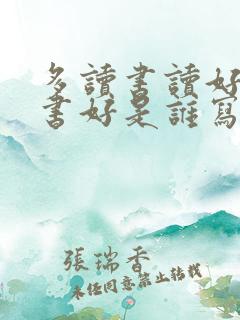 多讀書讀好
書好是誰寫
張瑞香
未經同意禁止轉載